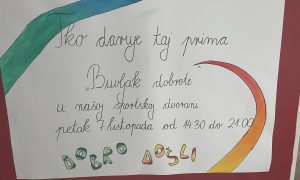 Tko daruje taj prima
„Buvljak dobrote"
u našoj športskoj dvorani
petak 7. listopada od 14:30 do 21:00
DOBRO DOŠLI